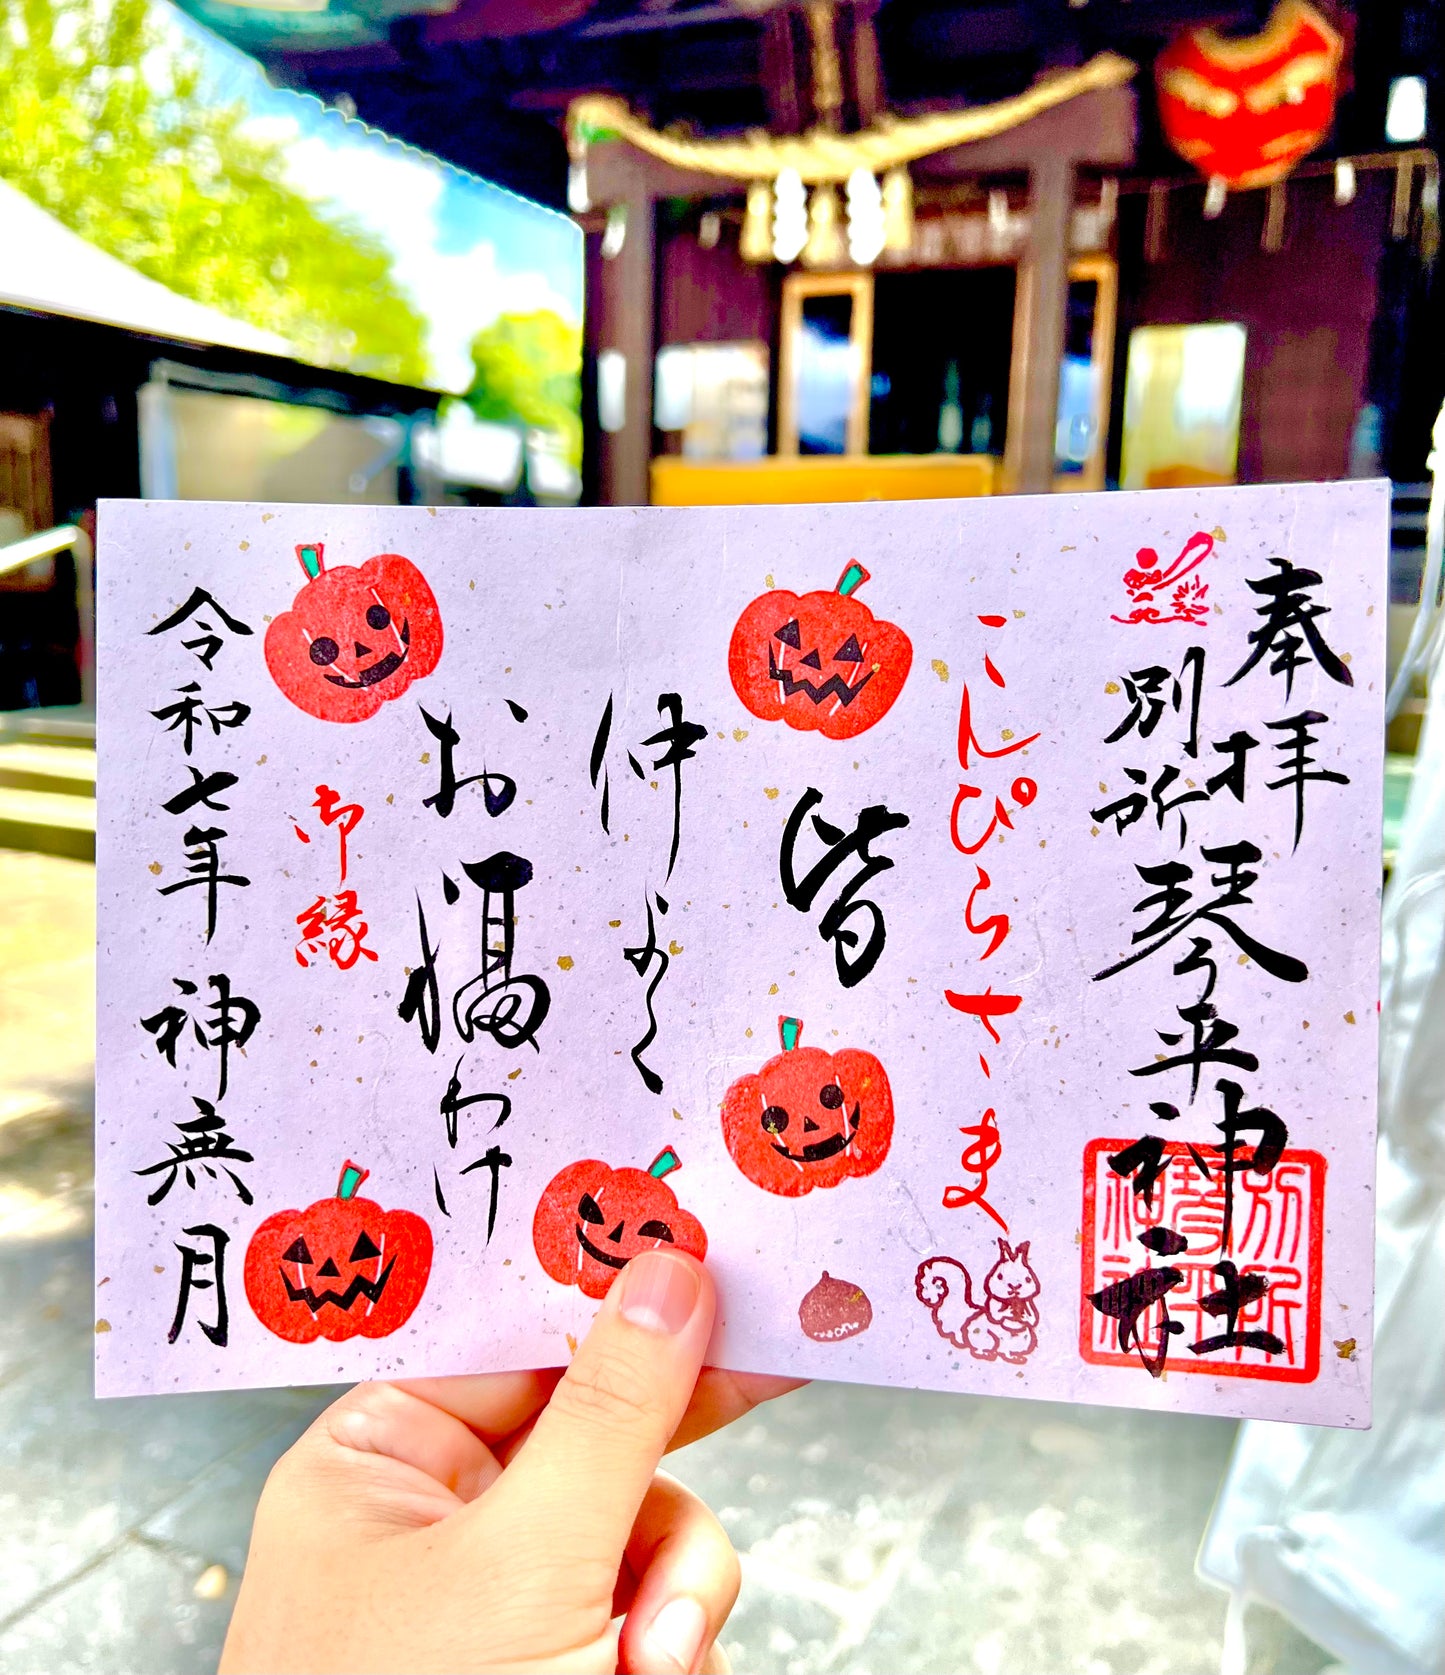 奉拝
別所琴平神社
別所琴平神社
こんぴらさま
皆
仲よく
お福わけ
御縁
令和七年 神無月